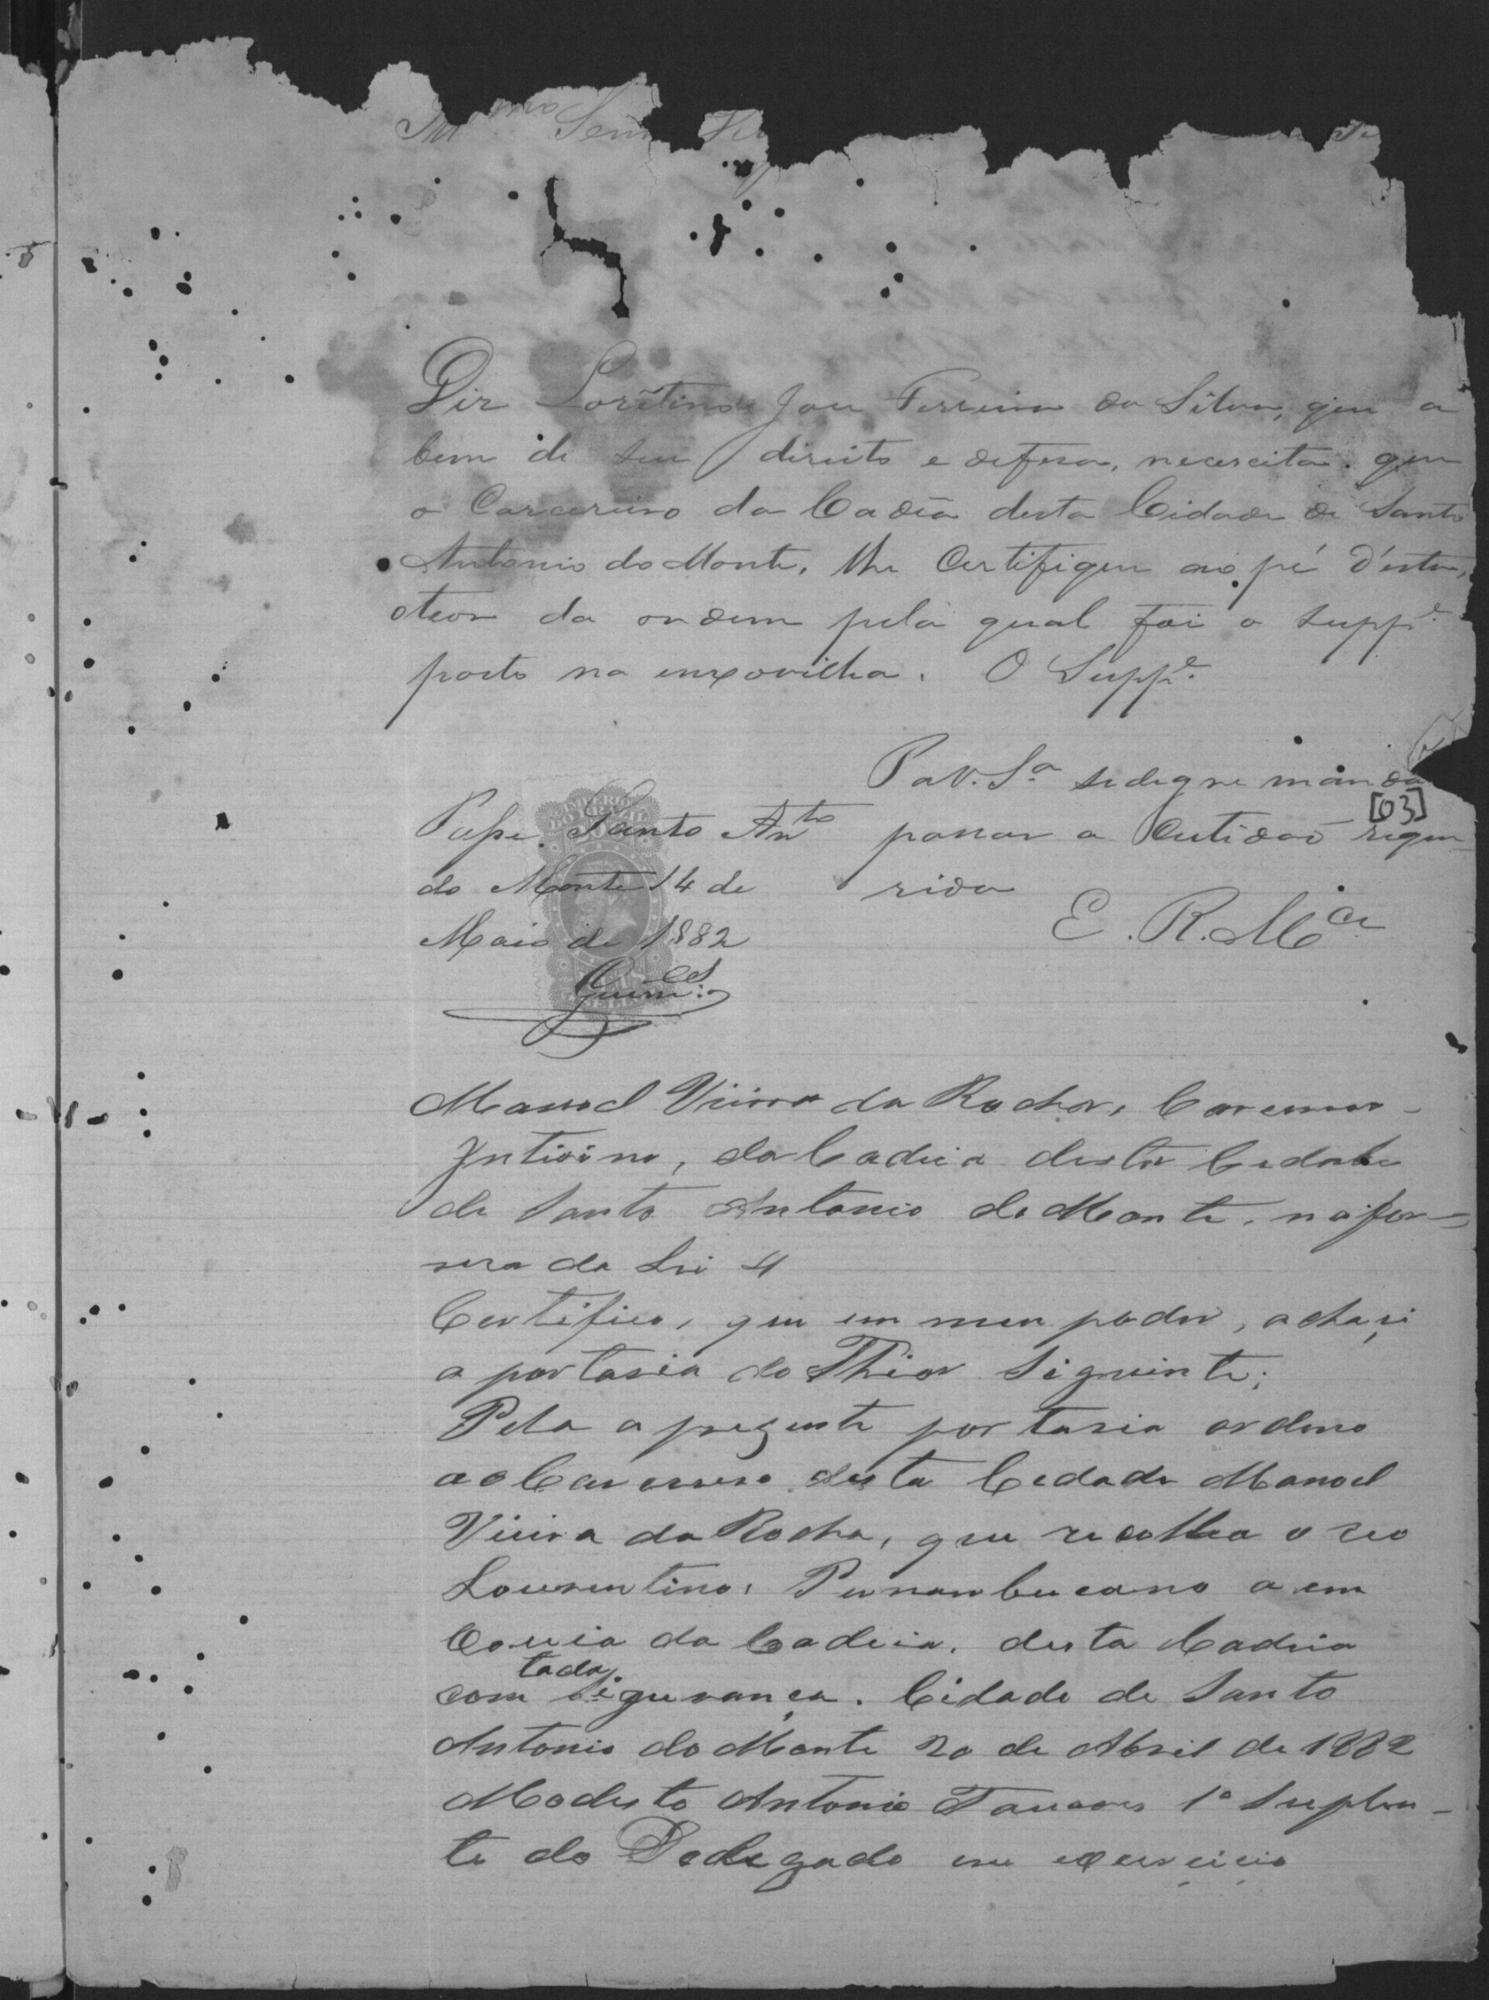 Ill mo Senr
Diz Lorẽtino Jose Ferreira da Silva, que a
bem de seu direito e defesa, necescita que
o Carcereiro da Cadêa desta Cidade de Santo
Antonio do Monte, lhe Certifique ao pé d'esta,
oteor da ordem pela qual foi o suppe
posto na enxovilha. O Suppe
Pa V. Sa sedigne mandar
[03]
passar a Certidaõ reque-
rida
E. R. Mce
Passe. Santo Anto
do Monte 14 de
Maio de 1882
Guimes
IMPERIO
DO BRAZIL
Manoel Vieira da Rocha, Carcereiro
Intirino, da Cadeia desta Cidade
de Santo Antonio do Monte, na for-
ma da Lei &
Certifico, que em meu poder, achaçi
a portaria do Thior Siguinte;
Pela a prezente portaria ordeno
ao Carcereiro desta Cidade Manoel
Vieira da Rocha, que recolha o reo
Lourentino, Pernambucano a em
da Cadeia, desta Cadeia
com toda Sigurança. Cidade de Santo
Antonio do Monte 20 de Abril de 1882
Modesto Antonio Tavares 1º Suplen-
te do Delegado em exercicio